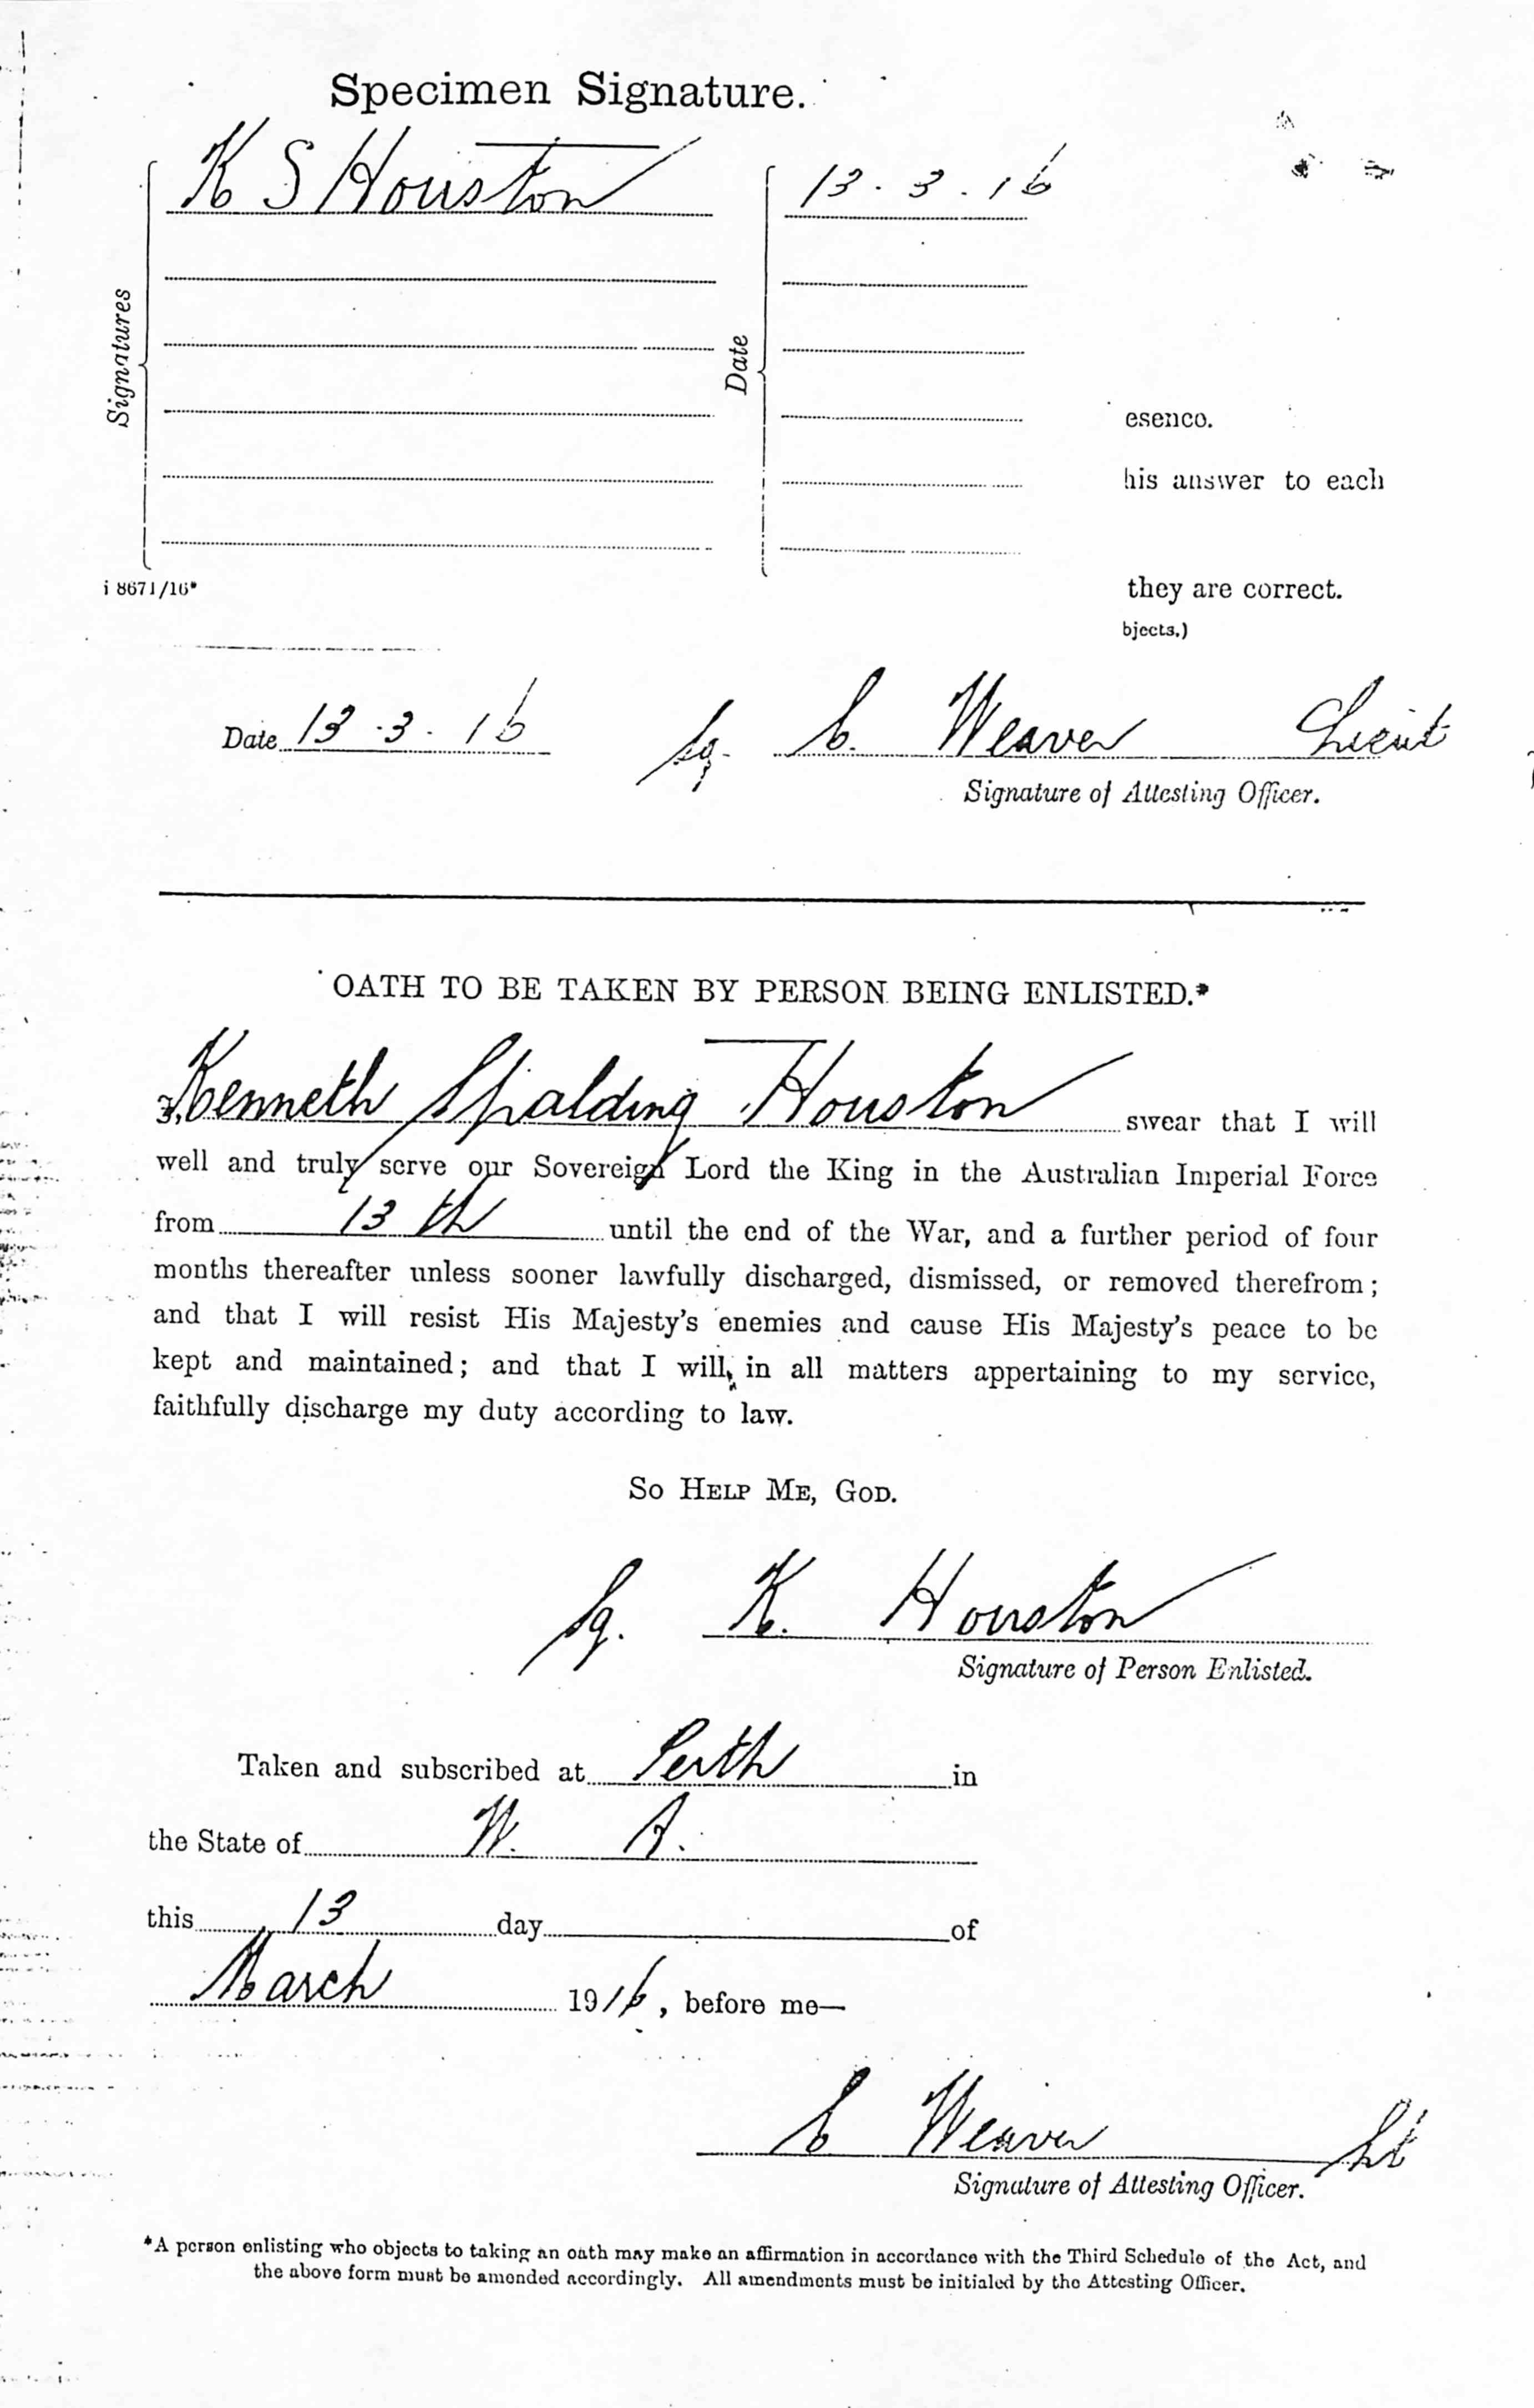 Specimen Signature.
K S Houston 13.3.16
Signatures
Date
esence.
his answer to each
i 8671/16*
they are correct.
bjects.)
Date 13.3.16 Sg. C. Weaver Lieut
Signature of Attesting Officer.
OATH TO BE TAKEN BY PERSON BEING ENLISTED.*
I, Kenneth Spalding Houston swear that I will
well and truly serve our Sovereign Lord the King in the Australian Imperial Force
from 13th until the end of the War, and a further period of four
months thereafter unless sooner lawfully discharged, dismissed, or removed therefrom;
and that I will resist His Majesty's enemies and cause His Majesty's peace to be
kept and maintained; and that I will, in all matters appertaining to my service,
faithfully discharge my duty according to law.
So Help Me, God.
Sg. K. Houston
Signature of Person Enlisted.
Taken and subscribed at Perth in
the State of W. A.
this 13 day of
March 1916, before me—
C Weaver Lt
Signature of Attesting Officer.
*A person enlisting who objects to taking an oath may make an affirmation in accordance with the Third Schedule of the Act, and
the above form must be amended accordingly. All amendments must be initialed by the Attesting Officer.